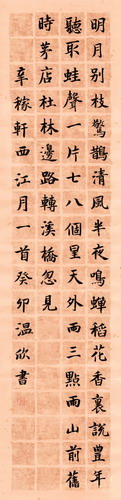 明月别枝驚鵲清風半夜鳴蟬稻花香裏說豐年
聽取蛙聲一片七八個星天外兩三點雨山前舊
時茅店社林邊路轉溪橋忽見
辛稼軒西江月一首癸卯温欣書